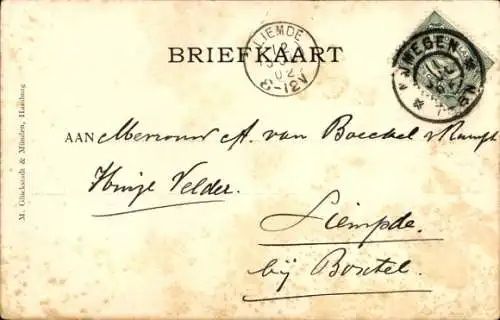 BRIEFKAART
LIEMDE
12
02
8-12V
NIJMEGEN
AAN Mevrouw A. van Boeckel v Kampt
Huize Velder.
Liempde.
bij Boxtel.
M. Glückstadt & Münden, Hamburg